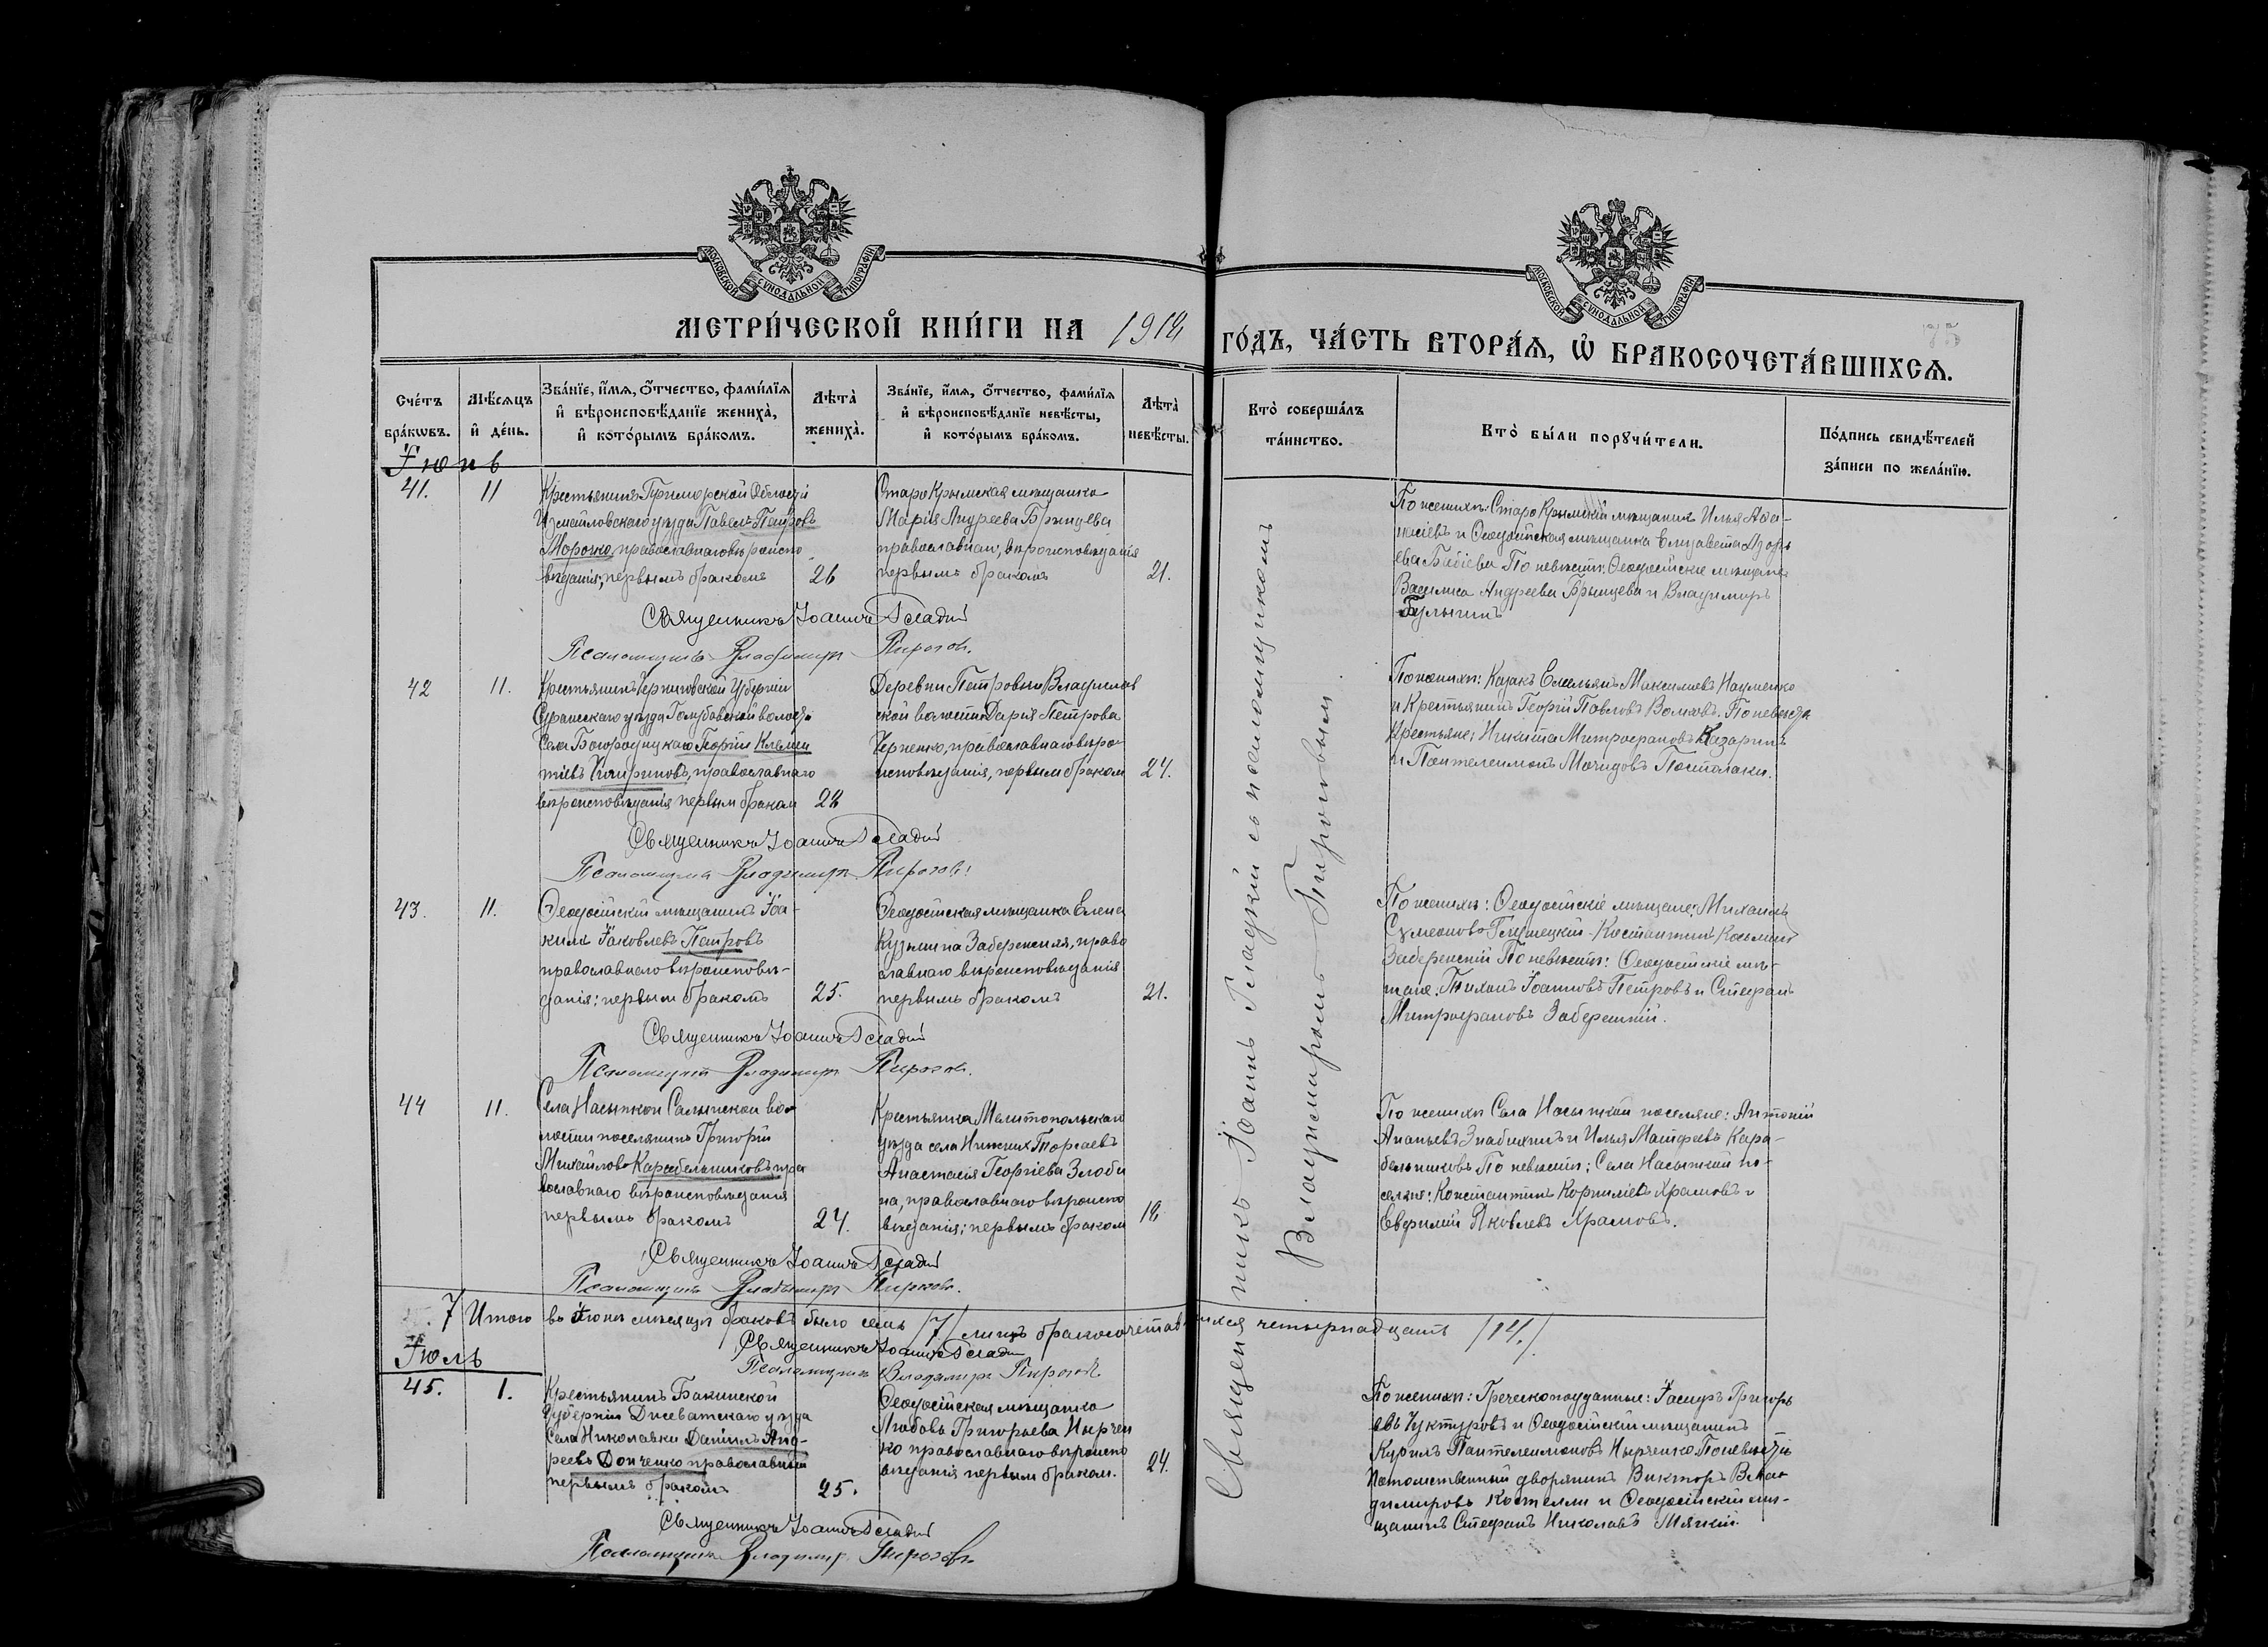 МОСКОВСКОЙ СѴНОДАЛЬНОЙ ТИПОГРАФІИ
МОСКОВСКОЙ СѴНОДАЛЬНОЙ ТИПОГРАФІИ
МЕТРИ́ЧЕСКОЙ КНИ́ГИ НА 1912 ГО́ДЪ, ЧА́СТЬ ВТОРА́Ѧ, Ѡ БРАКОСОЧЕТА́ВШИХСѦ.
Сче́тъ бра́кѡвъ.
Мѣ́сѧцъ и де́нь.
Зва́нїе, и́мѧ, о́тчество, фами́лїѧ и вѣроисповѣ́данїе жениха̀, и кото́рымъ бра́комъ.
Лѣта̀ жениха̀.
Зва́нїе, и́мѧ, о́тчество, фами́лїѧ и вѣроисповѣ́данїе невѣ́сты, и кото́рымъ бра́комъ.
Лѣта̀ невѣ́сты.
Кто̀ соверша́лъ та́инство.
Кто̀ бы́ли порꙋчи́тели.
По́дпись свидѣ́телей за́писи по жела́нїю.
Іюнь
41.
11
Крестьянинъ Приморской Области
Измайловскаго уѣзда Павелъ Петровъ
Морочко, православнаго вѣроиспо
вѣданія, первымъ бракомъ
26
Старо Крымская мѣщанка
Марія Андреева Брынцева
православнаго, вѣроисповѣданія
первымъ бракомъ
21.
По женихѣ: Старо Крымскій мѣщанинъ Илья Аѳа-
насіевъ и Ѳеодосійская мѣщанка Елизавета
Бабіева По невѣстѣ: Ѳеодосійскіе мѣщане
Василиса Андреева Брынцева и Владимиръ
Булыгинъ
Священникъ Іоаннъ Гладкій
Псаломщикъ Владимиръ Пироговъ.
42
11.
Крестьянинъ Черниговской Губерніи
Суражскаго уѣзда волости
Села Богородицкаго Георгій Клемен
тіевъ православнаго
вѣроисповѣданія первым бракомъ
28
Деревни Петровки Владислав
ской волости Дарія Петрова
Черненко, православнаго вѣро-
исповѣданія, первым браком
24.
По женихѣ: Казакъ Емельянъ Максимовъ Науменко
и Крестьянинъ Георгій Павловъ Волковъ. По невѣстѣ
Крестьяне: Никита Митрофановъ Казаринъ
и Пантелеимонъ Постолаки.
Священникъ Іоаннъ Гладкій
Псаломщикъ Владимиръ Пироговъ.
43.
11.
Ѳеодосійскій мѣщанинъ Іоа-
кимъ Іаковлевъ Петровъ
православнаго вѣроисповѣ-
данія; первым бракомъ
25.
Ѳеодосійская мѣщанка Елена
Кузьмина Забережная, право
славнаго вѣроисповѣданія
первымъ бракомъ
21.
По женихѣ: Ѳеодосійскіе мѣщане: Михаилъ
Сѵмеоновъ Константинъ Козьминъ
По невѣстѣ: Ѳеодосійскіе мѣ-
щане. Тихонъ Іоанновъ Петровъ и Стефанъ
Митрофановъ
Священникъ Іоаннъ Гладкій
Псаломщикъ Владимиръ Пироговъ.
44
11.
Села Насыпкой Салынской во-
лости поселянинъ Григорій
Михайловъ Карабельниковъ пра
вославнаго вѣроисповѣданія
первымъ бракомъ
24.
Крестьянка Мелитопольскаго
уѣзда села Нижних Торгаевъ
Анастасія Георгіева Злоби
на, православнаго вѣроиспо
вѣданія; первымъ браком
18
По женихѣ Села Насыпкой поселяне: Антоній
Ананьевъ Знабихинъ и Илья Матфеевъ Кара-
бельниковъ По невѣстѣ: Села Насыпкой по-
селяне: Константинъ Корниліевъ Храмовъ и
Евфимій Яковлевъ Храмовъ.
Священникъ Іоаннъ Гладкій
Псаломщикъ Владимиръ Пироговъ.
7 Итого въ Іюнѣ мѣсяцѣ браковъ было семь /7/ лицъ бракосочетавшихся четырнадцать /14./
Священникъ Іоаннъ Гладкій
Псаломщикъ Владимиръ Пироговъ
Іюль
45.
1.
Крестьянинъ Бакинской
Губерніи Джеватскаго уѣзда
Села Николаевки Даніилъ Анд-
реевъ Донченко православный
первымъ бракомъ
25.
Ѳеодосійская мѣщанка
Любовь Григорьева Нырчен
ко православнаго вѣроиспо
вѣданія первым браком.
24.
По женихѣ: Греческоподданные: Григорь
евъ и Ѳеодосійскій мѣщанинъ
Кириллъ Пантелеимоновъ Нырченко. По невѣстѣ
Потомственный дворянинъ Викторъ Вла-
димировъ Костелли и Ѳеодосійскій мѣ-
щанинъ Стефанъ Николаевъ Мягкій.
Священникъ Іоаннъ Гладкій
Псаломщикъ Владимиръ Пироговъ.
Священникъ Іоаннъ Гладкій съ псаломщикомъ
Владимиромъ Пироговымъ.